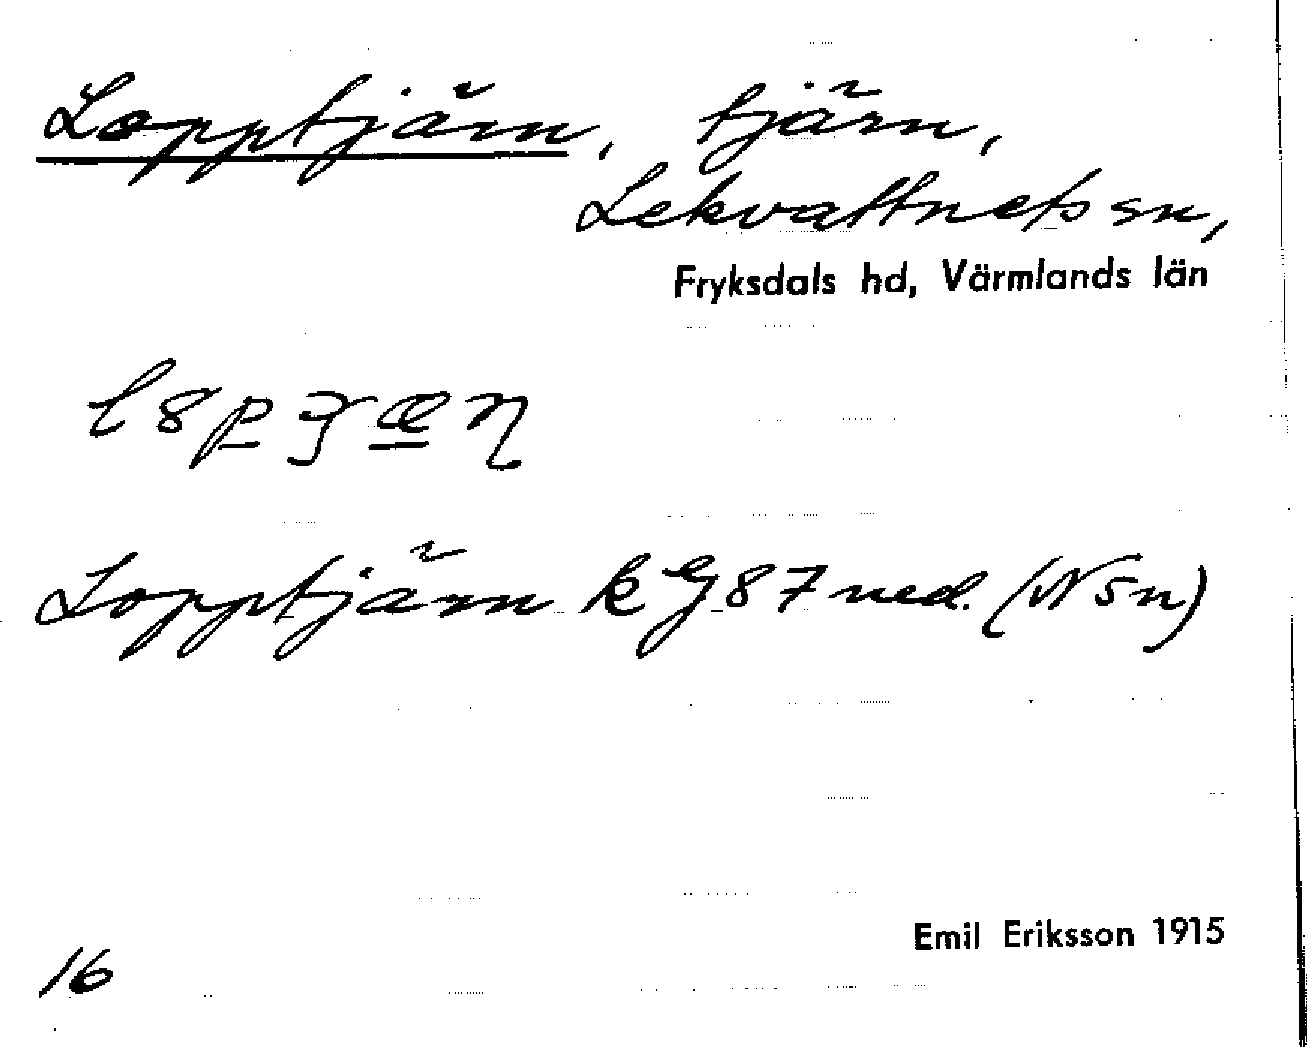 Lopptjärn, tjärn,
Lekvattnets sn,
Fryksdals hd, Värmlands län
Lopptjärn k G 87 ned. (N sn)
Emil Eriksson 1915
16